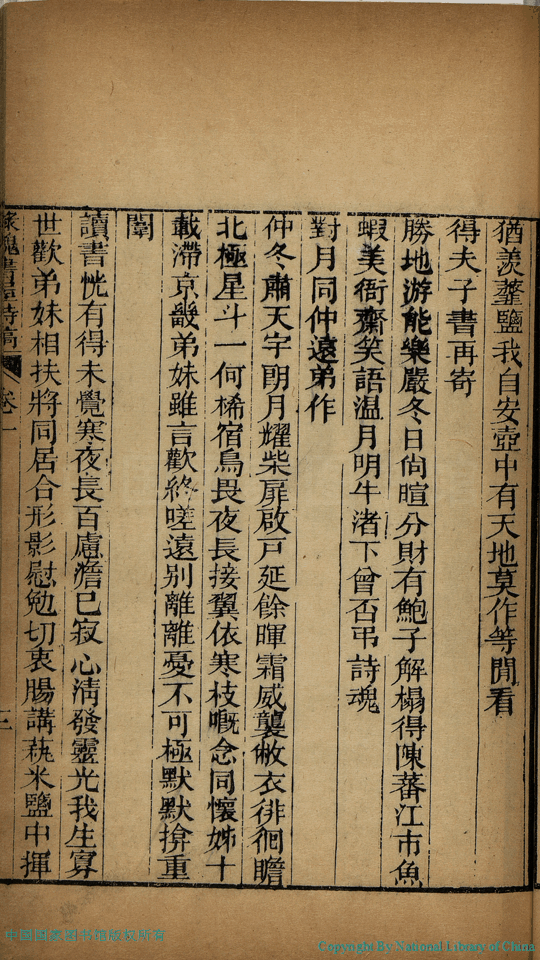 猶羨虀鹽我自安壺中有天地莫作等閒看
得夫子書再寄
勝地游能樂嚴冬日尙暄分財有鮑子解榻得陳蕃江市魚
蝦美衙齋笑語温月明牛渚下曾否弔詩魂
對月同仲遠弟作
仲冬肅天宇朗月耀柴扉啟戸延餘暉霜威襲敝衣徘徊瞻
北極星斗一何稀宿鳥畏夜長接翼依寒枝嘅念同懷姊十
載滯京畿弟妹雖言歡終嗟遠别離離憂不可極默默揜重
闈
讀書恍有得未覺寒夜長百慮澹已寂心淸發靈光我生寡
世歡弟妹相扶將同居合形影慰勉切衷腸講蓺米鹽中揮
槐書屋詩稿 卷一 三
中国国家图书馆版权所有
Copyright By National Library of China